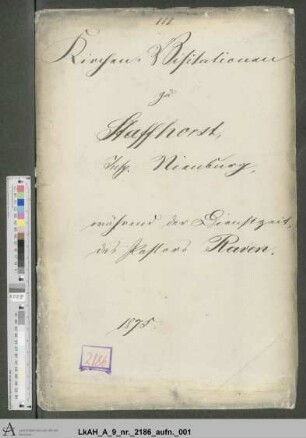 111
Kirchen-Visitationen
zu
Staffhorst,
Insp. Nienburg,
während der Dienstzeit
des Pastors Raven.
1875.
2186
LkAH_A_9_nr._2186_aufn._001